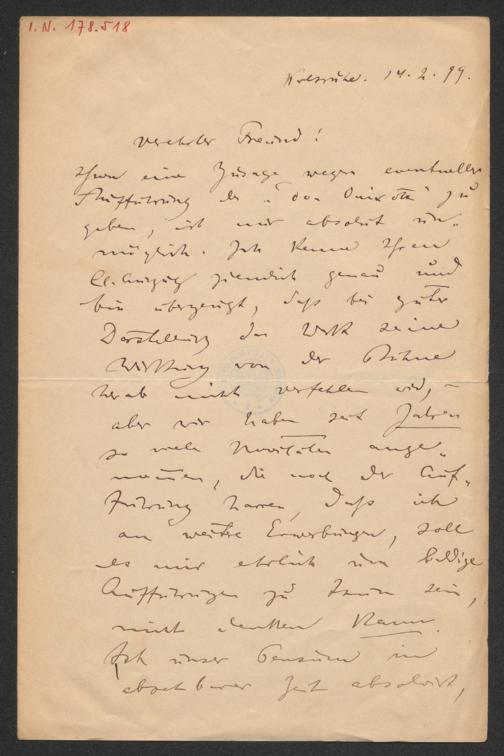 I.N. 178.518
Karlsruhe. 14.2.99.
Verehrter Freund!
Ihnen eine Zusage wegen eventueller
Aufführung des "Don Quixote" zu
geben, ist mir absolut un-
möglich. Ich kenne Ihren
Cl.-Auszug ziemlich genau und
bin überzeugt, daß bei guter
Darstellung das Werk seine
Wirkung von der Bühne
herab nicht verfehlen wird, –
aber wir haben seit Jahren
so viele Novitäten ange-
nommen, die noch der Auf-
führung harren, daß ich
an weitre Erwerbungen, soll
es mir ehrlich um baldige
Aufführungen zu thun sein,
nicht denken kann.
Ist unser Pensum in
absehbarer Zeit absolvirt,